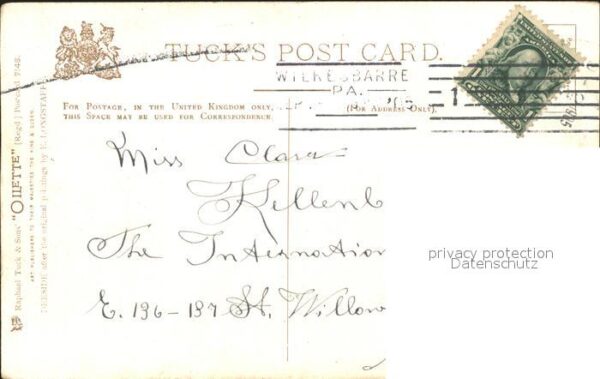 TUCK'S POST CARD.
WILKESBARRE
PA.
1
FOR POSTAGE, IN THE UNITED KINGDOM ONLY,
THIS SPACE MAY BE USED FOR CORRESPONDENCE.
(FOR ADDRESS ONLY).
Raphael Tuck & Sons' "OILETTE" [Regd.]
ART PUBLISHERS TO THEIR MAJESTIES THE KING & QUEEN
after the original paintings by E. LONGSTAFFE
Miss Clara
Kellenb
The Internation
E. 136-137 St. Willow
privacy protection
Datenschutz